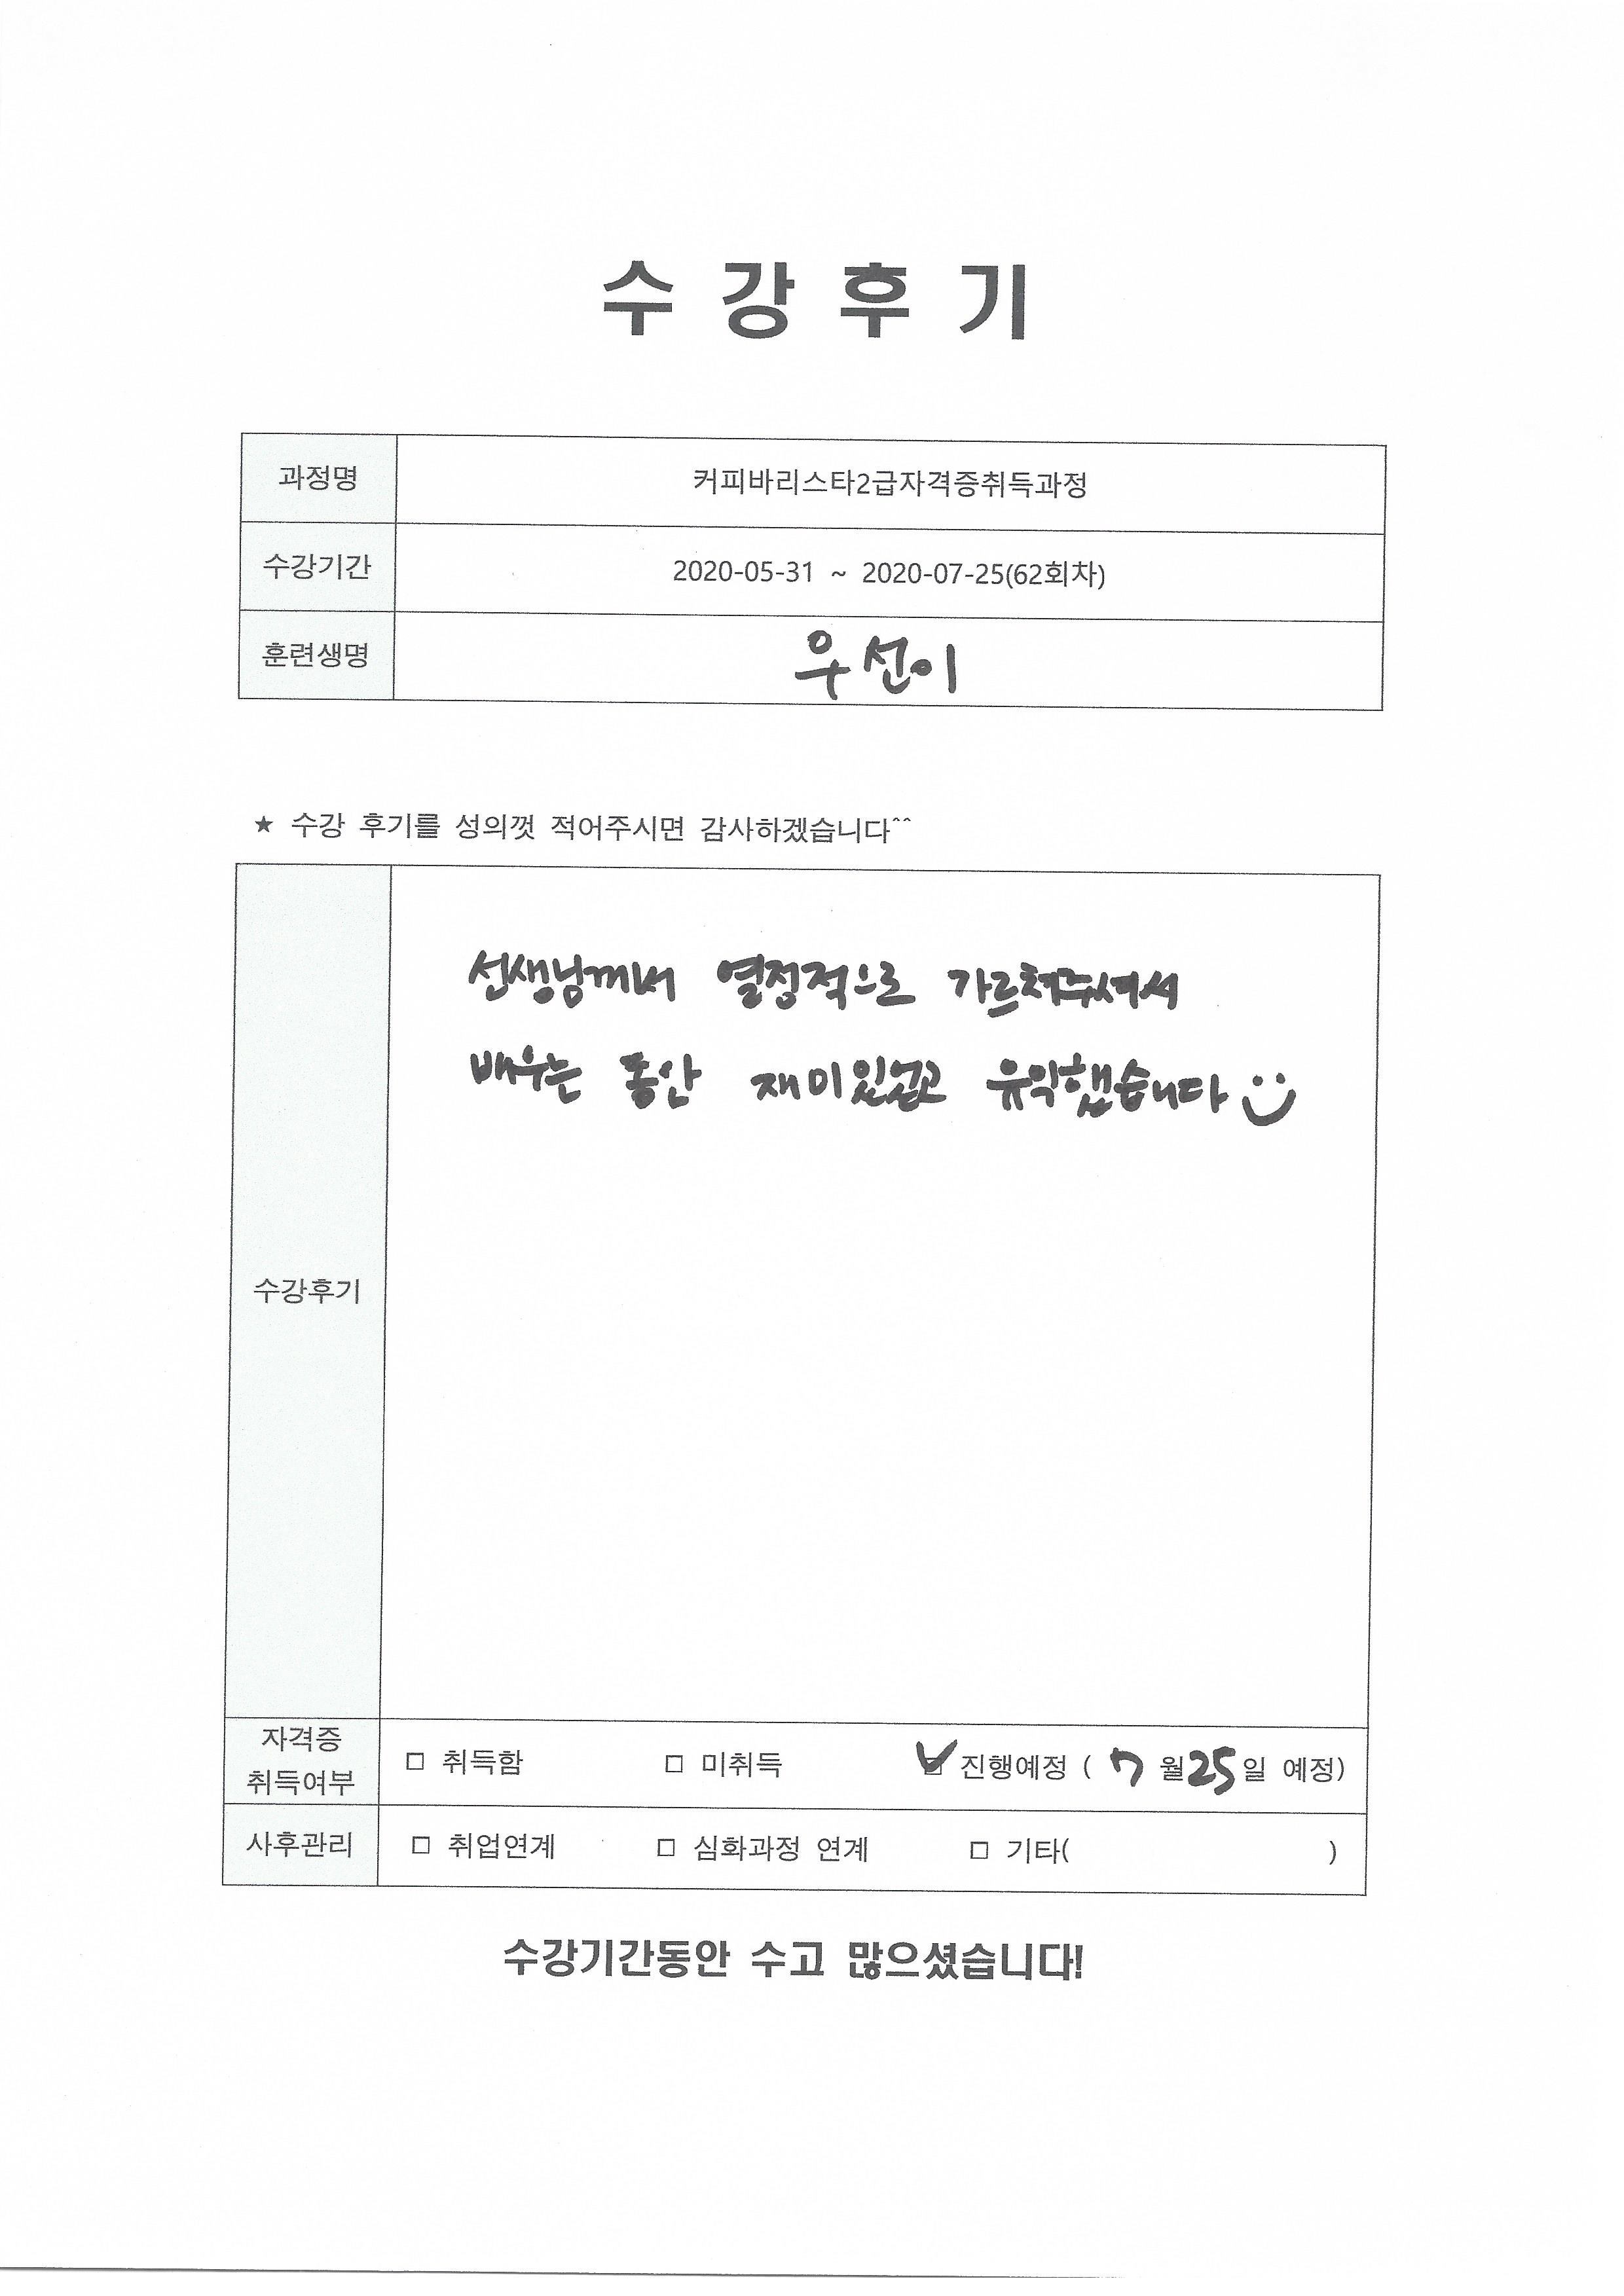 수강후기
과정명 커피바리스타2급자격증취득과정
수강기간 2020-05-31 ~ 2020-07-25(62회차)
훈련생명 우선이
★ 수강 후기를 성의껏 적어주시면 감사하겠습니다^^
선생님께서 열정적으로 가르쳐주셔서
배우는 동안 재미있었고 유익했습니다
수강후기
자격증
취득여부
□ 취득함 □ 미취득 ☑ 진행예정 ( 7 월 25 일 예정)
사후관리 □ 취업연계 □ 심화과정 연계 □ 기타( )
수강기간동안 수고 많으셨습니다!